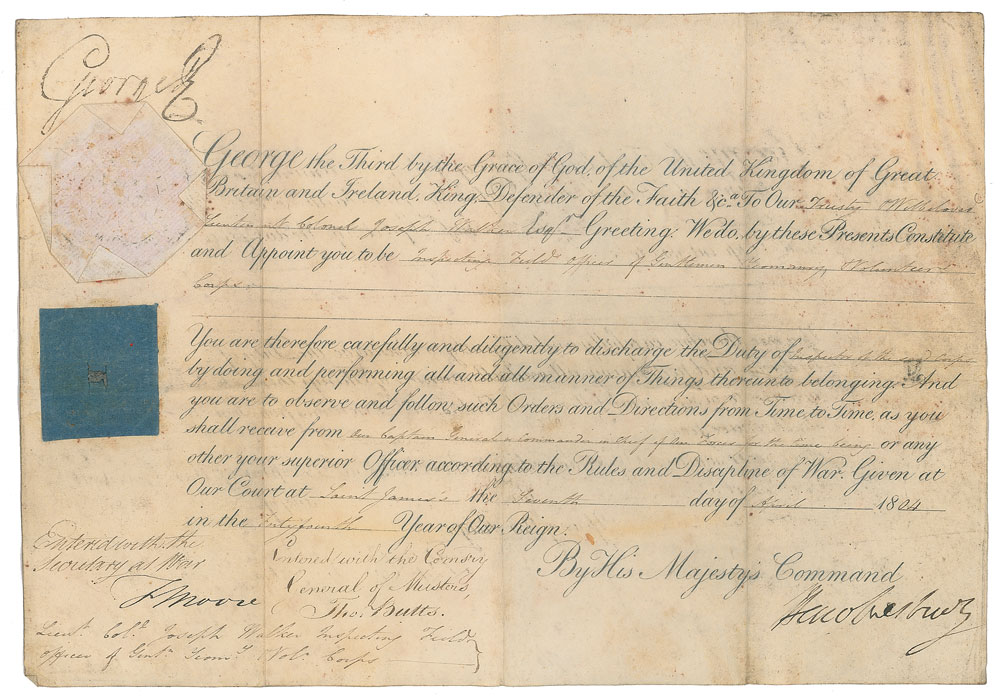 George R
George the Third by the Grace of God, of the United Kingdom of Great
Britain and Ireland, King, Defender of the Faith &ca. To Our Trusty & Wellbeloved
Lieutenant Colonel Joseph Walker Esqr. Greeting: We do, by these Presents Constitute
and Appoint you to be Inspecting Field Officer of Gentlemen Yeomanry, Volunteer
Corps
You are therefore carefully and diligently to discharge the Duty of Inspector of the said Corps
by doing and performing all and all manner of Things thereunto belonging: And
you are to observe and follow such Orders and Directions from Time to Time, as you
shall receive from Our Captain General or Commander in Chief of Our Forces for the time being or any
other your superior Officer, according to the Rules and Discipline of War. Given at
Our Court at Saint James's the Seventh day of April 1804
in the Fortyfourth Year of Our Reign.
By His Majesty's Command
Entered with the
Secretary at War
F Moore
Entered with the Comsry
General of Musters,
Tho. Butts.
Hawkesbury
Lieut. Colo. Joseph Walker Inspecting Field
Officer of Gentn. Yeomy. Volr. Corps